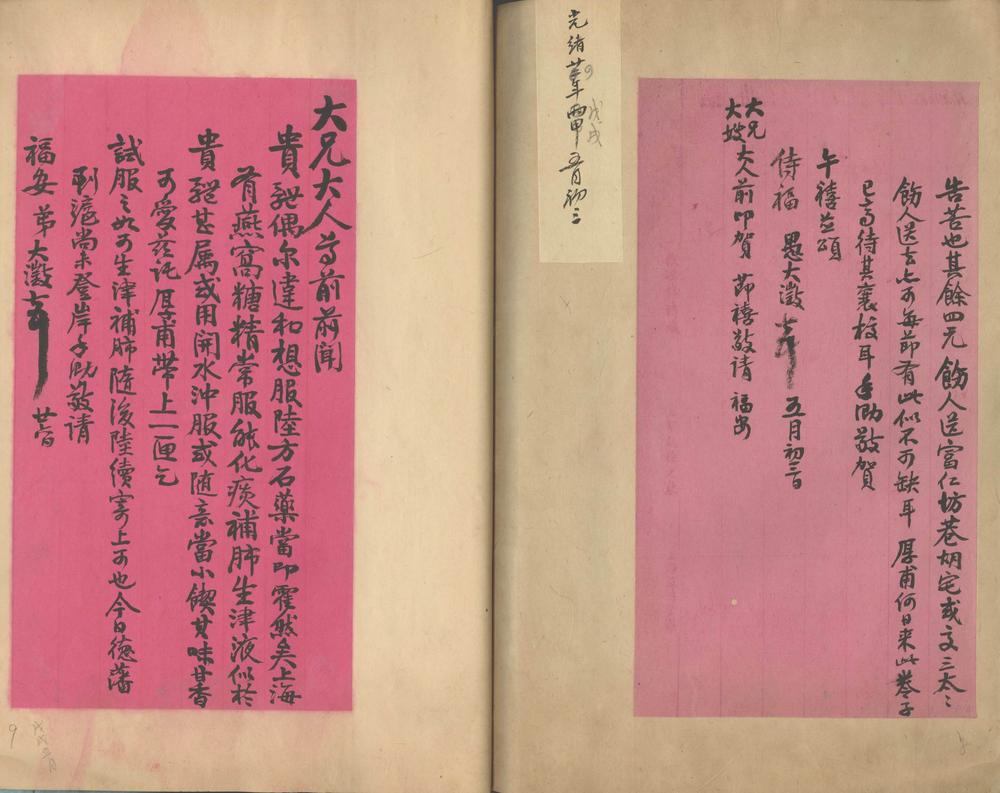 告苦也其餘四元飭人送富仁坊巷胡宅或交三太〻
飭人送去亦可每節有此似不可缺耳厚甫何日來此卷子
已另待其襄校耳手泐敬賀
午禧並頌
侍福 愚大澂頓首 五月初三日
大兄
大嫂大人前叩賀 節禧敬請 福安
光緒廿年 五月初三
戊戌
大兄大人尊前前聞
貴體偶尔違和想服陸方石藥當即霍然矣上海
有燕窩糖精常服能化痰補肺生津液似於
貴體甚属或用開水沖服或随意當小饌其味甘香
可愛茲託厚甫帶上一匣乞
試服之如可生津補肺随後陸續寄上可也今日德藩
到滬尚未登岸手泐敬請
福安 弟大澂頓首
9